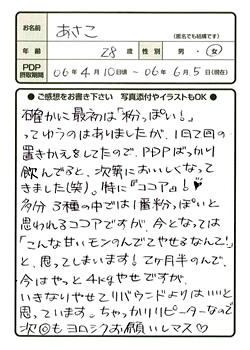 お名前 あさこ
(匿名でも結構です)
年齢 28歳 性別 男・女
PDP摂取期間 06年4月10日頃～06年6月5日(現在)
●ご感想をお書き下さい 写真添付やイラストもOK●
確かに最初は「粉っぽい!」
ってゆうのはありましたが、1日で2回の
置きかえをしてたので、PDPばっかり
飲んでると、次第においしくなって
きました(笑)。特に『ココア』!♥
多分3種の中では1番粉っぽいと
思われるココアですが、今となっては
「こんな甘いモンのんでてやせるなんて!」
と、思ってしまいます!2ヶ月半のんで、
今はやっと4kgやせですが、
いきなりやせてリバウンドよりはいいと
思っています。ちゃっかりリピーターなので
次回もヨロシクお願いしマス♡